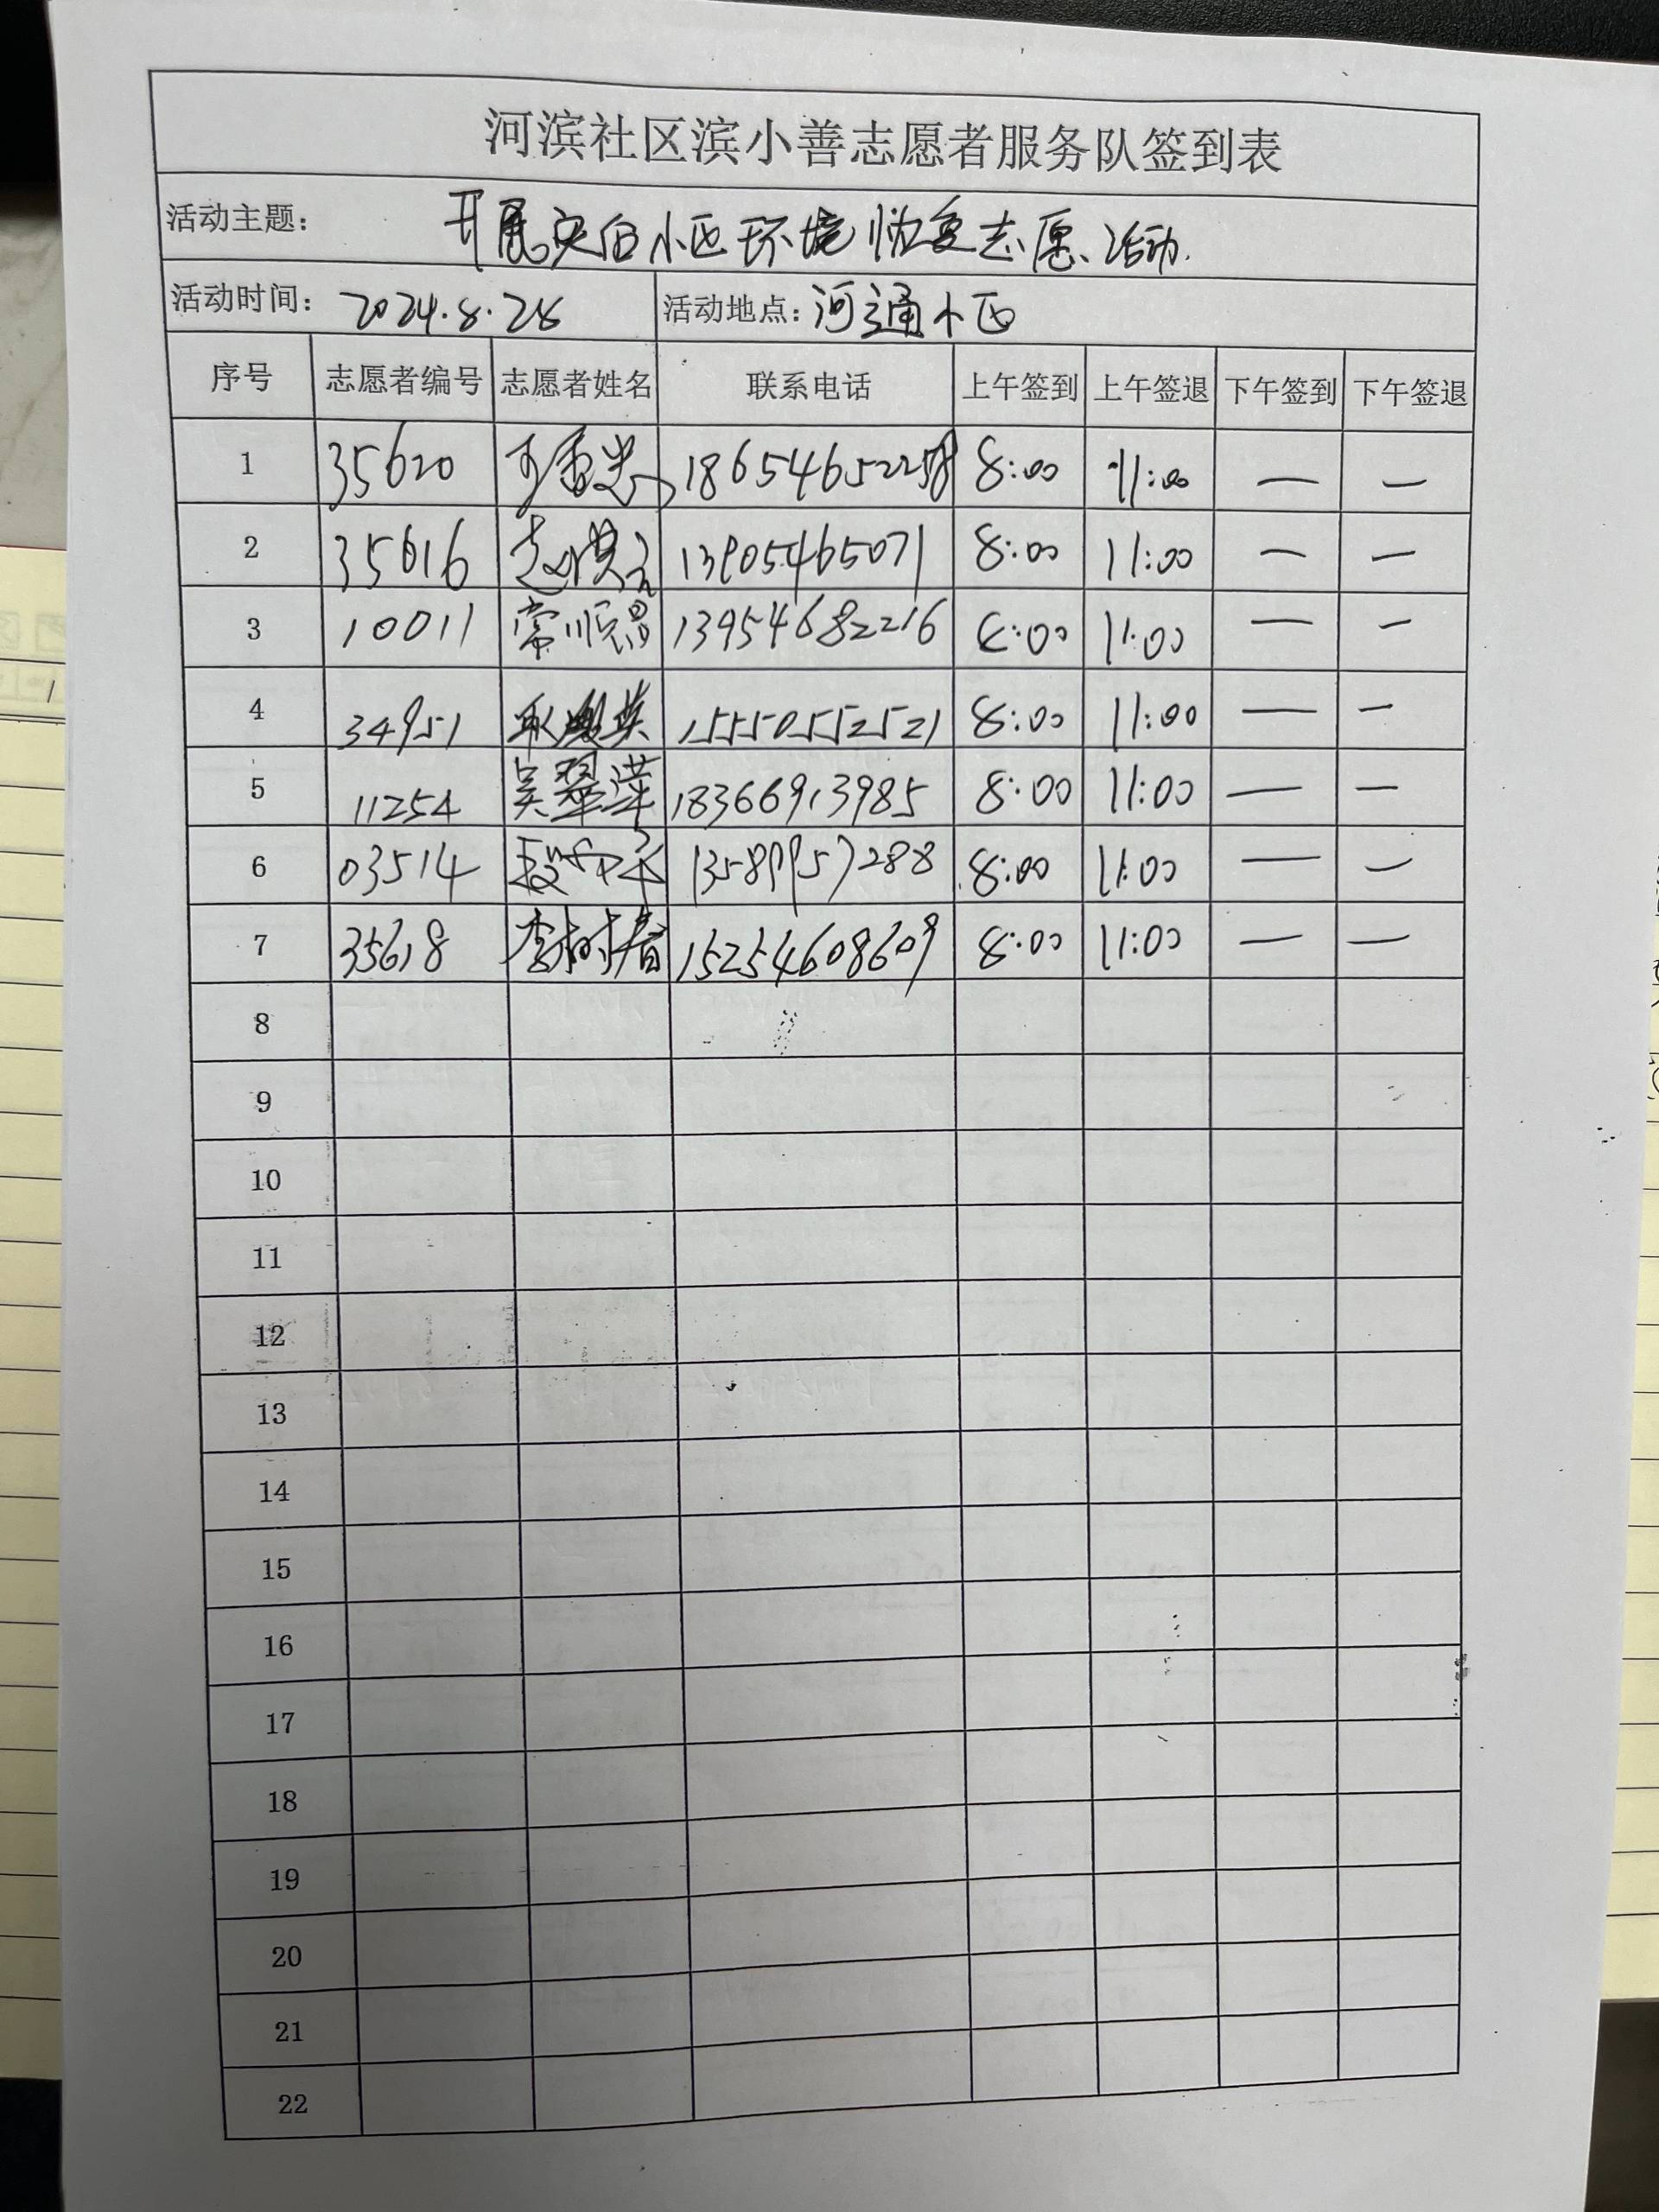 河滨社区滨小善志愿者服务队签到表
活动主题： 开展灾后小区环境恢复志愿活动.
活动时间： 2024.8.28 活动地点：河通小区
序号 志愿者编号 志愿者姓名 联系电话 上午签到 上午签退 下午签到 下午签退
1 35620 18654652258 8:00 11:00 — —
2 35616 13905465071 8:00 11:00 — —
3 10011 常顺 13954682216 8:00 11:00 — —
4 34951 15550552521 8:00 11:00 — —
5 11254 吴翠萍 18366913985 8:00 11:00 — —
6 03514 13589957288 8:00 11:00 — —
7 35618 李树春 15254608609 8:00 11:00 — —
8
9
10
11
12
13
14
15
16
17
18
19
20
21
22